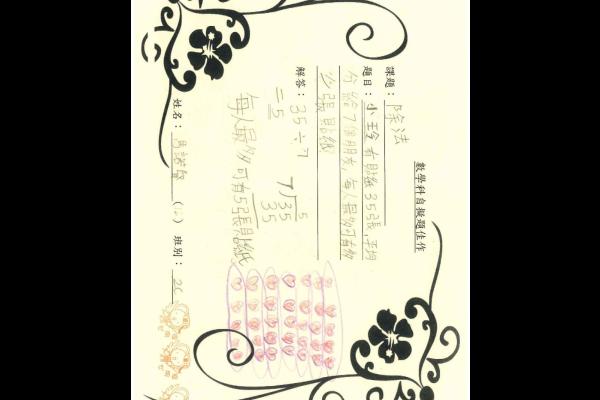 數學科自擬題佳作
課題：除法
題目：小玲有貼紙35張，平均
分給7個朋友，每人最多可有多
少張貼紙
解答：35÷7
=5
5
7)35
35
每人最多可有5張貼紙
姓名： （ ） 班別：2C